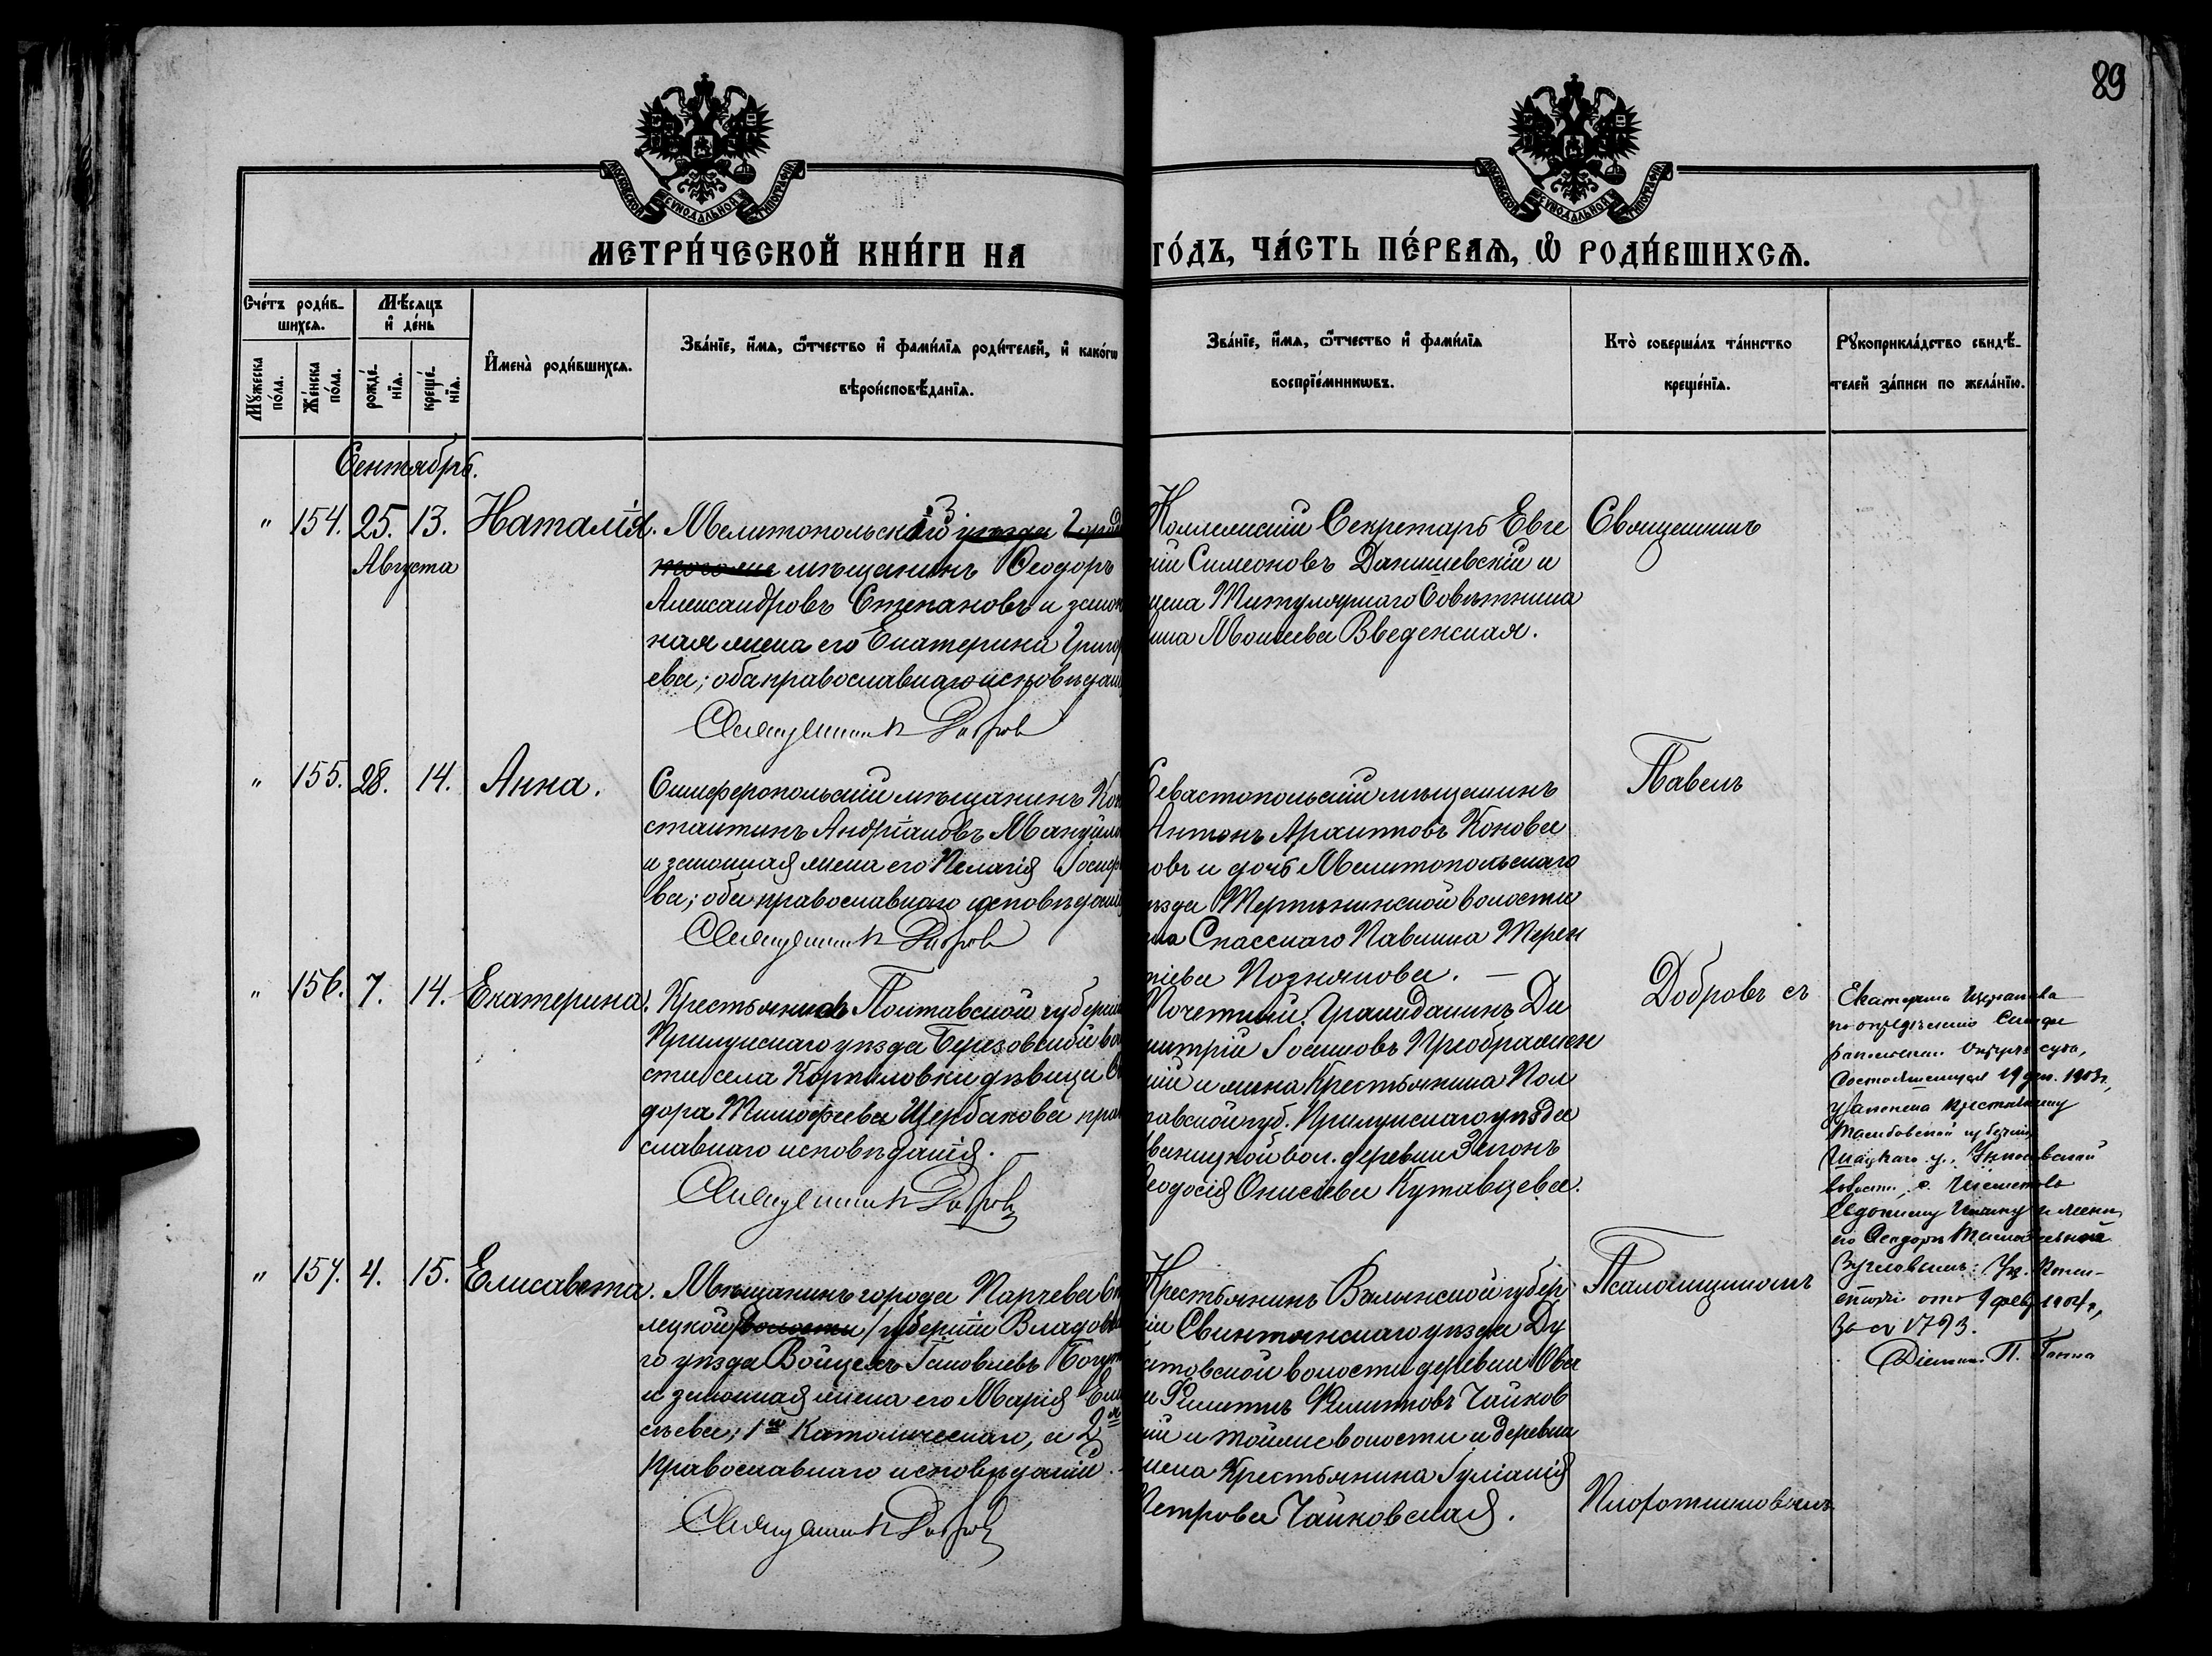 89
МОСКОВСКОЙ СѴНОДАЛЬНОЙ ТИПОГРАФІИ
МОСКОВСКОЙ СѴНОДАЛЬНОЙ ТИПОГРАФІИ
МЕТРИ́ЧЕСКОЙ КНИ́ГИ НА
ГО́ДЪ, ЧА́СТЬ ПЕ́РВАѦ, Ѡ РОДИ́ВШИХСѦ.
Сче́тъ роди́в-
шихсѧ.
Мꙋ́жеска
по́ла.
Же́нска
по́ла.
Мѣ́сѧцъ
и҆ де́нь
рожде́-
нїѧ.
креще́-
нїѧ.
И҆мена̀ роди́вшихсѧ.
Зва́нїе, и҆́мѧ, ѻ҆́тчество и҆ фами́лїѧ роди́телей, и҆ како́гѡ
вѣроисповѣ́данїѧ.
Зва́нїе, и҆́мѧ, ѻ҆́тчество и҆ фами́лїѧ
воспрїе́мникѡвъ.
Кто̀ соверша́лъ та́инство
креще́нїѧ.
Рꙋкоприкла́дство свидѣ́-
телей за́писи по жела́нїю.
Сентябрь.
" 154. 25. 13. Наталія.
Августа
Мелитопольскій уѣзда
мѣщанинъ Ѳеодоръ
Александровъ Степановъ и закон
ная жена его Екатерина Григор
ева; оба православнаго исповѣдан
Священникъ Добров
Коллежскій Секретарь Евге
ній Симеоновъ Данишевскій и
жена Титулярнаго Совѣтника
Моисеева Введенская.
Священникъ
" 155. 28. 14. Анна.
Симферопольскій мѣщанинъ Кон
стантинъ Андріановъ Мануйло
и законная жена его Пелагія Іосиф
ва; оба православнаго исповѣдані
Священникъ Добров
Севастопольскій мѣщанинъ
Антонъ Архиповъ Конова
овъ и дочь Мелитопольскаго
уѣзда волости
села Спасскаго Павлина Терен
тіева Познякова. —
Павелъ
" 156. 7. 14. Екатерина.
Крестьянка Полтавской губерні
Прилукскаго уѣзда Березовской во
сти села Корниловки дѣвица
дора Тимофеева Щербакова пра
славнаго исповѣданія. —
Священникъ Добровъ
Почетный Гражданинъ Ди
митрій Іосифовъ Преображен
кій и жена Крестьянина Пол
тавской губ. Прилукскаго уѣзда
вол. деревни
Ѳеодосія Онисіева Кутавцева.
Добровъ съ
Екатерина Щербакова
по опредѣленію Симфе
ропольскаго Окружн суда,
состоявшемуся 19 дек. 1903 г.,
усыновлена крестьянину
Тамбовской губерніи
Шацкаго у.,
волости, с.
Евдокиму и жены
его Ѳеодоры Тимофеевной
отъ 9 февр 1904 г.,
за № 1793.
" 157. 4. 15. Елисавета.
Мѣщанинъ города Парчева Сѣ
лецкой волости губерніи Владов
го уѣзда Войцехъ Яковлевъ
и законная жена его Марія
сѣева; 1й Католическаго, а 2я
православнаго исповѣданій. —
Священникъ Добровъ
Крестьянинъ Волынской губер
ніи уѣзда Ду
товской волости деревни
Филиппъ Филипповъ Чайков
кій и той же волости и деревни
жена Крестьянина Іуліанія
Петрова Чайковская.
Псаломщикомъ